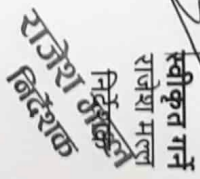 स्वीकृत गर्ने
राजेश मल्ल
निर्देशक
राजेश मल्ल
निर्देशक